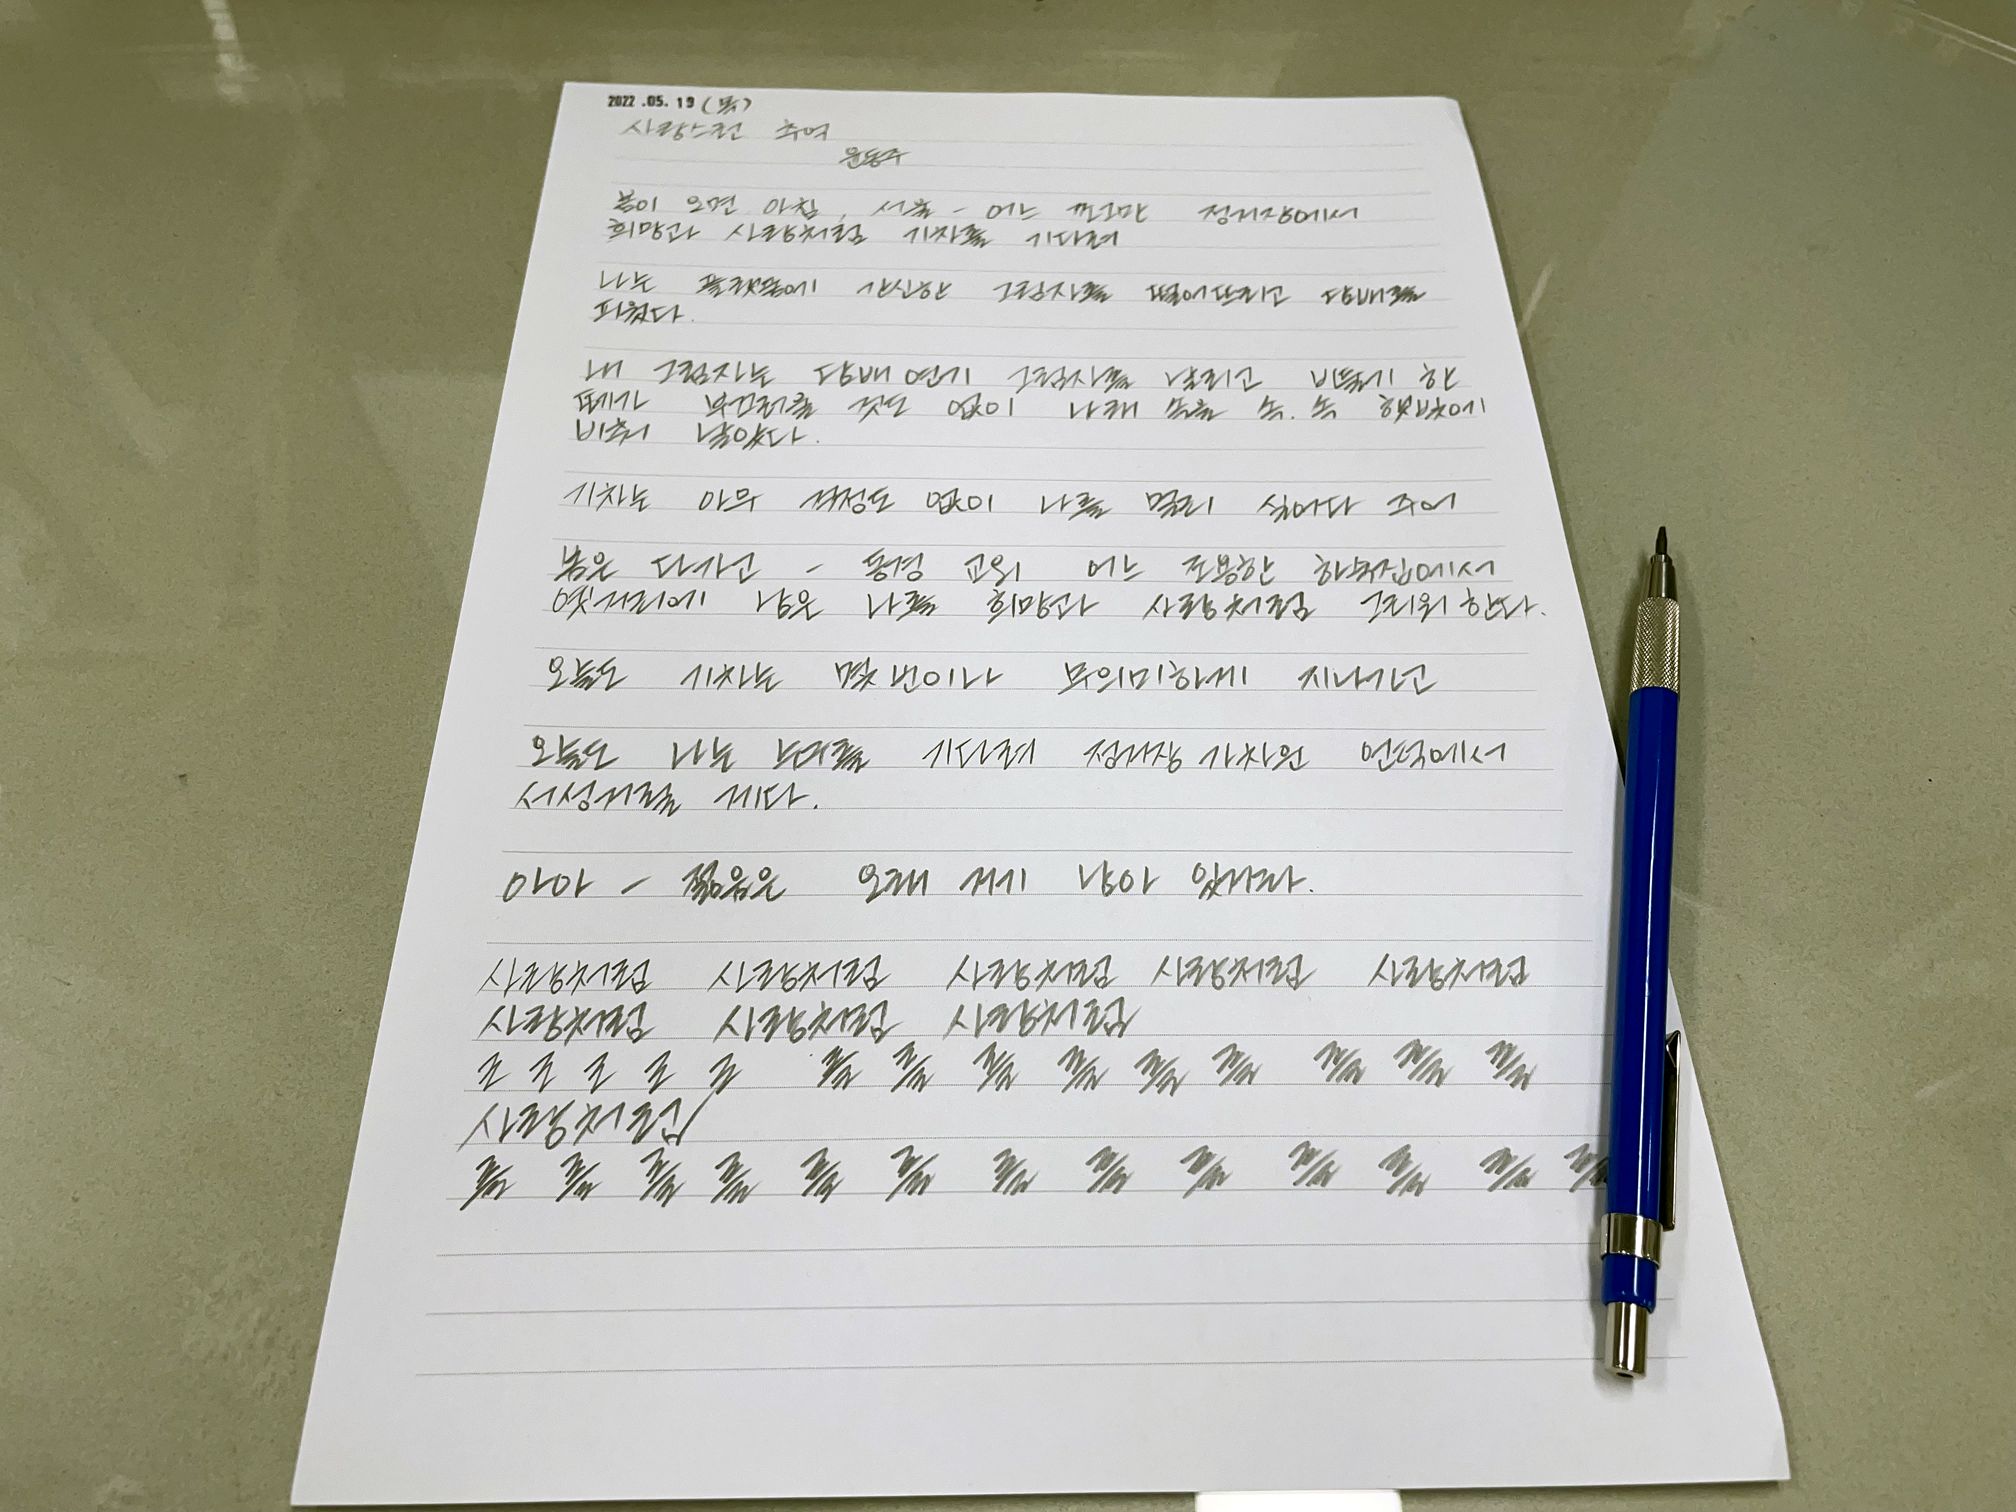 2022.05.19 (목)
사랑스런 추억
윤동주
봄이 오면 아침, 서울 - 어느 쪼그만 정거장에서
희망과 사랑처럼 기차를 기다려
나는 플랫폼에 간신한 그림자를 떨어뜨리고 담배를
피웠다.
내 그림자는 담배 연기 그림자를 날리고 비둘기 한
떼가 부끄러울 것도 없이 나래 속을 속.속 햇빛에
비춰 날았다.
기차는 아무 걱정도 없이 나를 멀리 실어다 주어
봄은 다가고 - 동경 교외 어느 조용한 하숙집에서
옛거리에 남은 나를 희망과 사랑처럼 그리워한다.
오늘도 기차는 몇 번이나 무의미하게 지나가고
오늘도 나는 누구를 기다려 정거장 가차운 언덕에서
서성거릴 게다.
아아 - 젊음은 오래 거기 남아 있거라.
사랑처럼 사랑처럼 사랑처럼 사랑처럼 사랑처럼
사랑처럼 사랑처럼 사랑처럼
사랑처럼